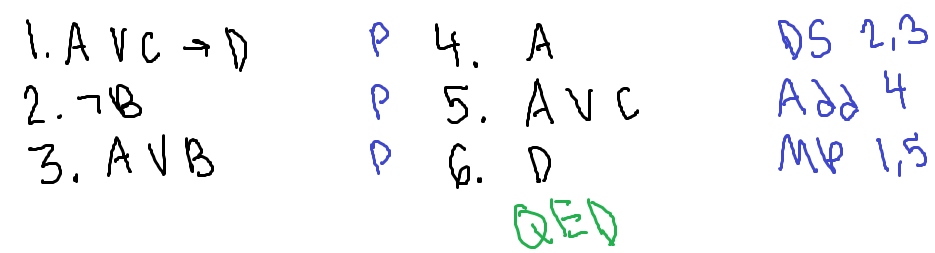 1. A ∨ C → D P
2. ¬B P
3. A ∨ B P
4. A DS 2,3
5. A ∨ C Add 4
6. D MP 1,5
QED